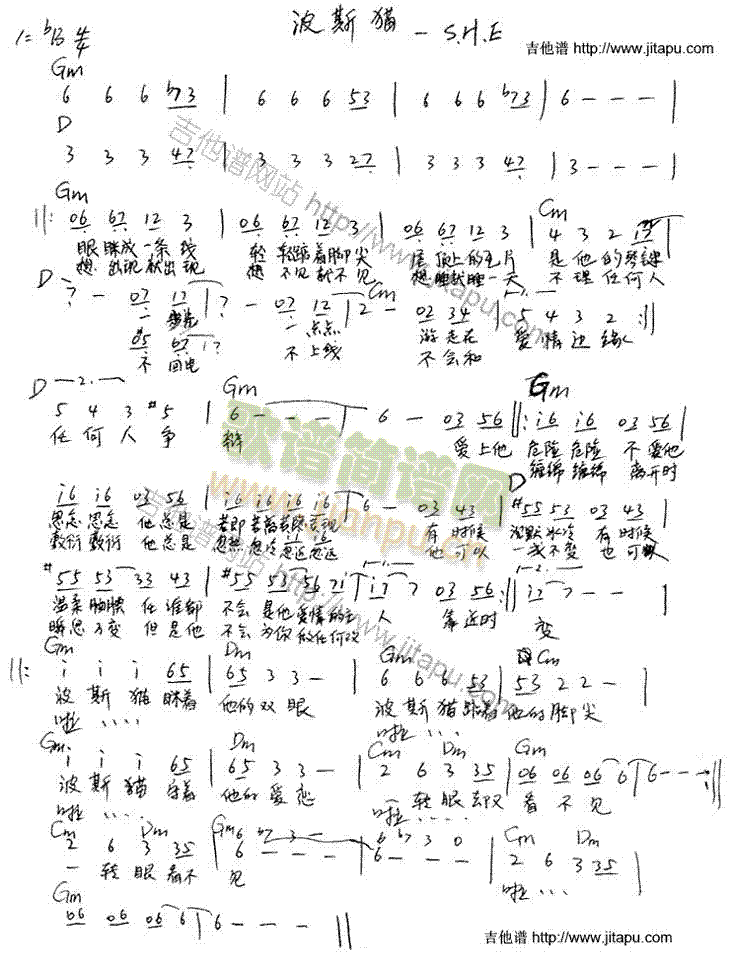 波斯猫 — S.H.E
1=ᵇB 4/4
吉他谱 http://www.jitapu.com
Gm
6 6 6 ᵇ73 | 6 6 6 53 | 6 6 6 ᵇ73 | 6 - - - |
D
3 3 3 47 | 3 3 3 27 | 3 3 3 47 | 3 - - - |
Gm Cm
||: 06 67 12 3 | 06 67 12 3 | 06 67 12 3 | 4 3 2 17 |
眼眯成一条线 轻轻踮着脚尖 屋顶上的瓦片 是他的琴键
想出现就出现 想不见就不见 想睡就睡一天 不理任何人
D Cm 1.
7 - 07 12 | 7 - 07 12 | 2 - 02 34 | 5 4 3 2 :||
一步步 一点点 游走在 爱情边缘
05 67 | 7
不回电 不上线 不会和
D 2. Gm Gm
5 4 3 #5 | 6 - - - | 6 - 03 56 ||: i6 i6 03 56 |
任何人争 辩 爱上他 危险危险 不爱他
缠绵缠绵 离开时
D
i6 i6 03 56 | i6 i6 i6 i6 | 6 - 03 43 | #55 53 03 43 |
思念思念 他总是 若即若离若隐若现 有时候 沉默冰冷 有时候
敷衍敷衍 他总是 忽热忽冷忽近忽远 他可以 一成不变 也可以
1. 2.
#55 53 33 43 | #55 53 56 7i | i7 7 03 56 :|| i7 7 - - |
温柔腼腆 任谁都 不会是他爱情的主 人 靠近时 变
瞬息万变 但是他 不会为你做任何改
Gm Dm Gm Cm
||: i i i 65 | 65 3 3 - | 6 6 6 53 | 53 2 2 - |
波斯猫眯着 他的双眼 波斯猫踮着 他的脚尖
啦.... 啦....
Gm Dm Cm Dm Gm
i i i 65 | 65 3 3 - | 2 6 3 35 | 06 06 06 6 | 6 - - - :||
波斯猫守着 他的爱恋 一转眼却又 看不见
啦.... 啦....
Cm Dm Gm Cm Dm
2 6 3 35 | 6 ᵇ7 3 - | 6 ᵇ7 3 0 | 2 6 3 35 |
6 - - - | 6 - - -
一转眼看不 见 啦....
Gm
06 06 06 6 | 6 - - - ||
吉他谱 http://www.jitapu.com
吉他谱网站 http://www.jitapu.com
歌谱简谱网
www.jianpu.cn
吉他谱网站 http://www.jitapu.com